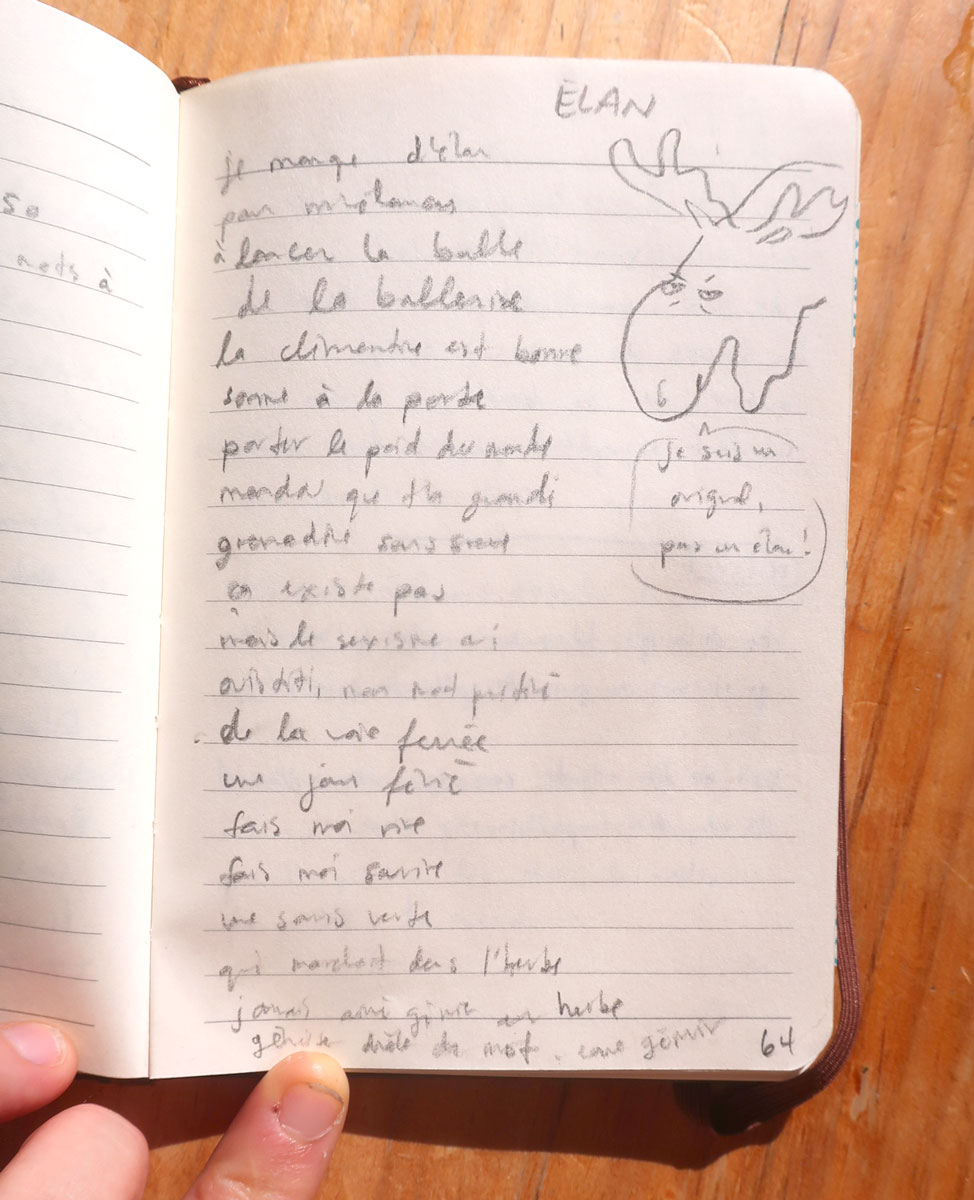 so
mots à
ÉLAN
je manque d'élan
pour
à lancer la balle
de la ballerine
la clémentine est bonne
sonne à la porte
porter le poid du monde
que t'a grandi
grenadine sans sirop
ça existe pas
mais le sexisme oui
ouistiti, mon mot préféré
de la voie ferrée
une jour férié
fais moi rire
fais moi sourire
une souris verte
qui marchait dans l'herbe
jamais aimé génie en herbe
génise drôle de mot. comme gémir
je suis un
orignal,
pas un élan!
64